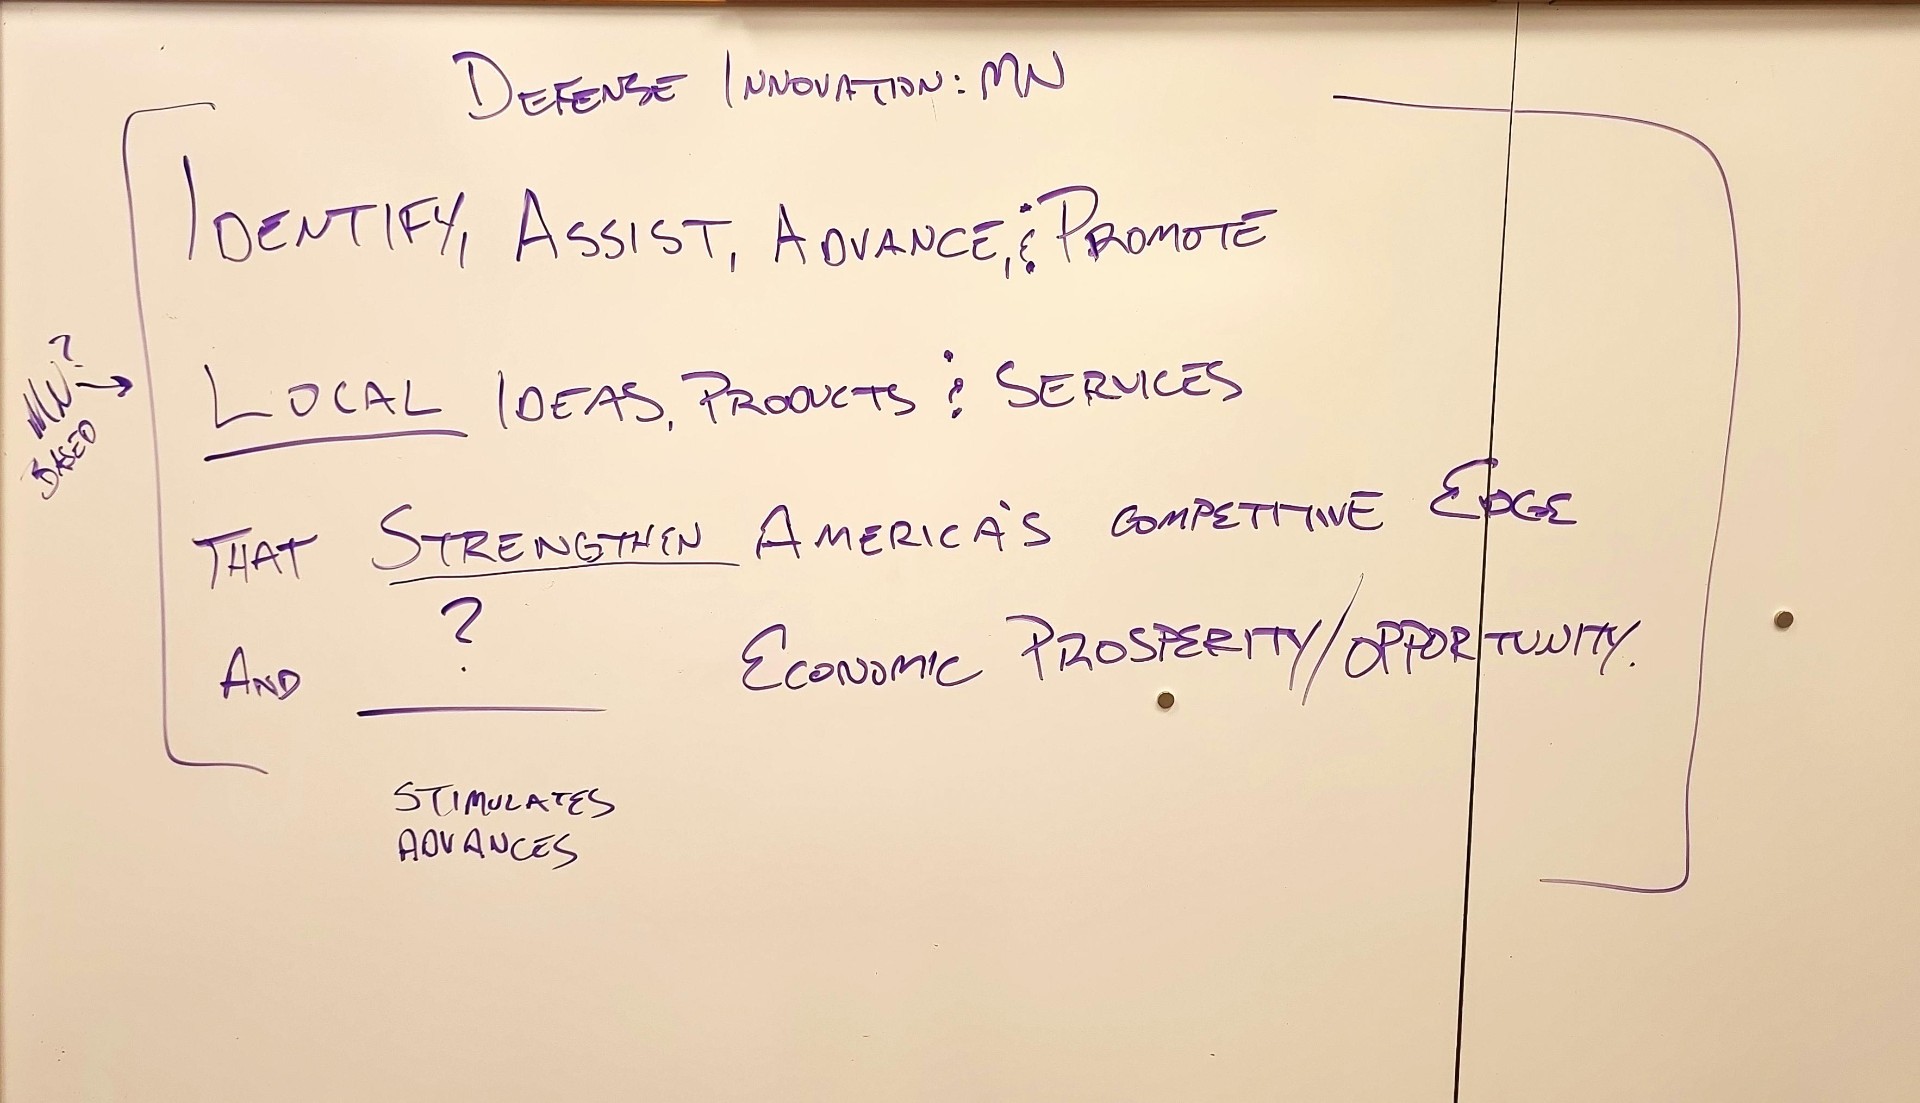 DEFENSE INNOVATION: MN
IDENTIFY, ASSIST, ADVANCE, & PROMOTE
MN?
BASED
LOCAL IDEAS, PRODUCTS & SERVICES
THAT STRENGTHEN AMERICA'S COMPETITIVE EDGE
AND ? ECONOMIC PROSPERITY/OPPORTUNITY.
STIMULATES
ADVANCES